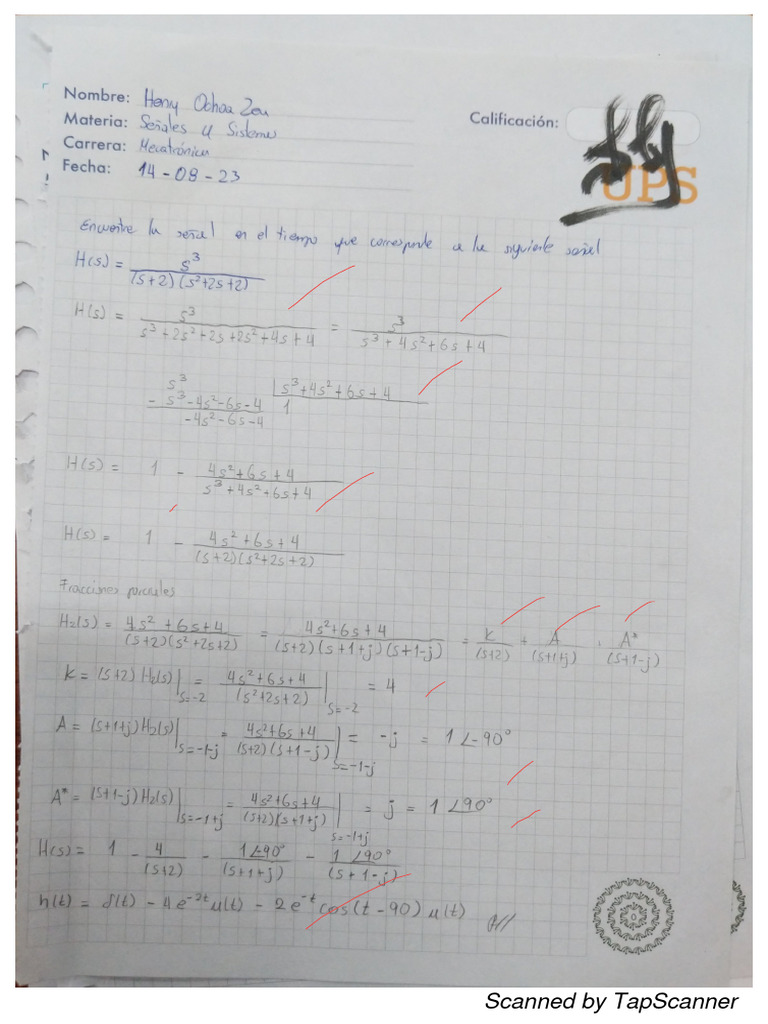 Nombre: Henry Ochoa Zea
Materia: Señales y Sistemas
Calificación:
Carrera: Mecatrónica
Fecha: 14-08-23
UPS
Encuentre la señal en el tiempo que corresponde a la siguiente señal
H(s) = s³ / (s+2)(s²+2s+2)
H(s) = s³ / s³+2s²+2s+2s²+4s+4 = s³ / s³+4s²+6s+4
s³ | s³+4s²+6s+4
-s³-4s²-6s-4 1
-4s²-6s-4
H(s) = 1 - 4s²+6s+4 / s³+4s²+6s+4
H(s) = 1 - 4s²+6s+4 / (s+2)(s²+2s+2)
Fracciones parciales
H₂(s) = 4s²+6s+4 / (s+2)(s²+2s+2) = 4s²+6s+4 / (s+2)(s+1+j)(s+1-j) = k / (s+2) + A / (s+1+j) + A* / (s+1-j)
k = (s+2) H₂(s) | s=-2 = 4s²+6s+4 / (s²+2s+2) | s=-2 = 4
A = (s+1+j) H₂(s) | s=-1-j = 4s²+6s+4 / (s+2)(s+1-j) | s=-1-j = -j = 1∠-90°
A* = (s+1-j) H₂(s) | s=-1+j = 4s²+6s+4 / (s+2)(s+1+j) | s=-1+j = j = 1∠90°
H(s) = 1 - 4 / (s+2) - 1∠-90° / (s+1+j) - 1∠90° / (s+1-j)
h(t) = δ(t) - 4e⁻²ᵗ u(t) - 2e⁻ᵗ cos(t-90) u(t)
Scanned by TapScanner